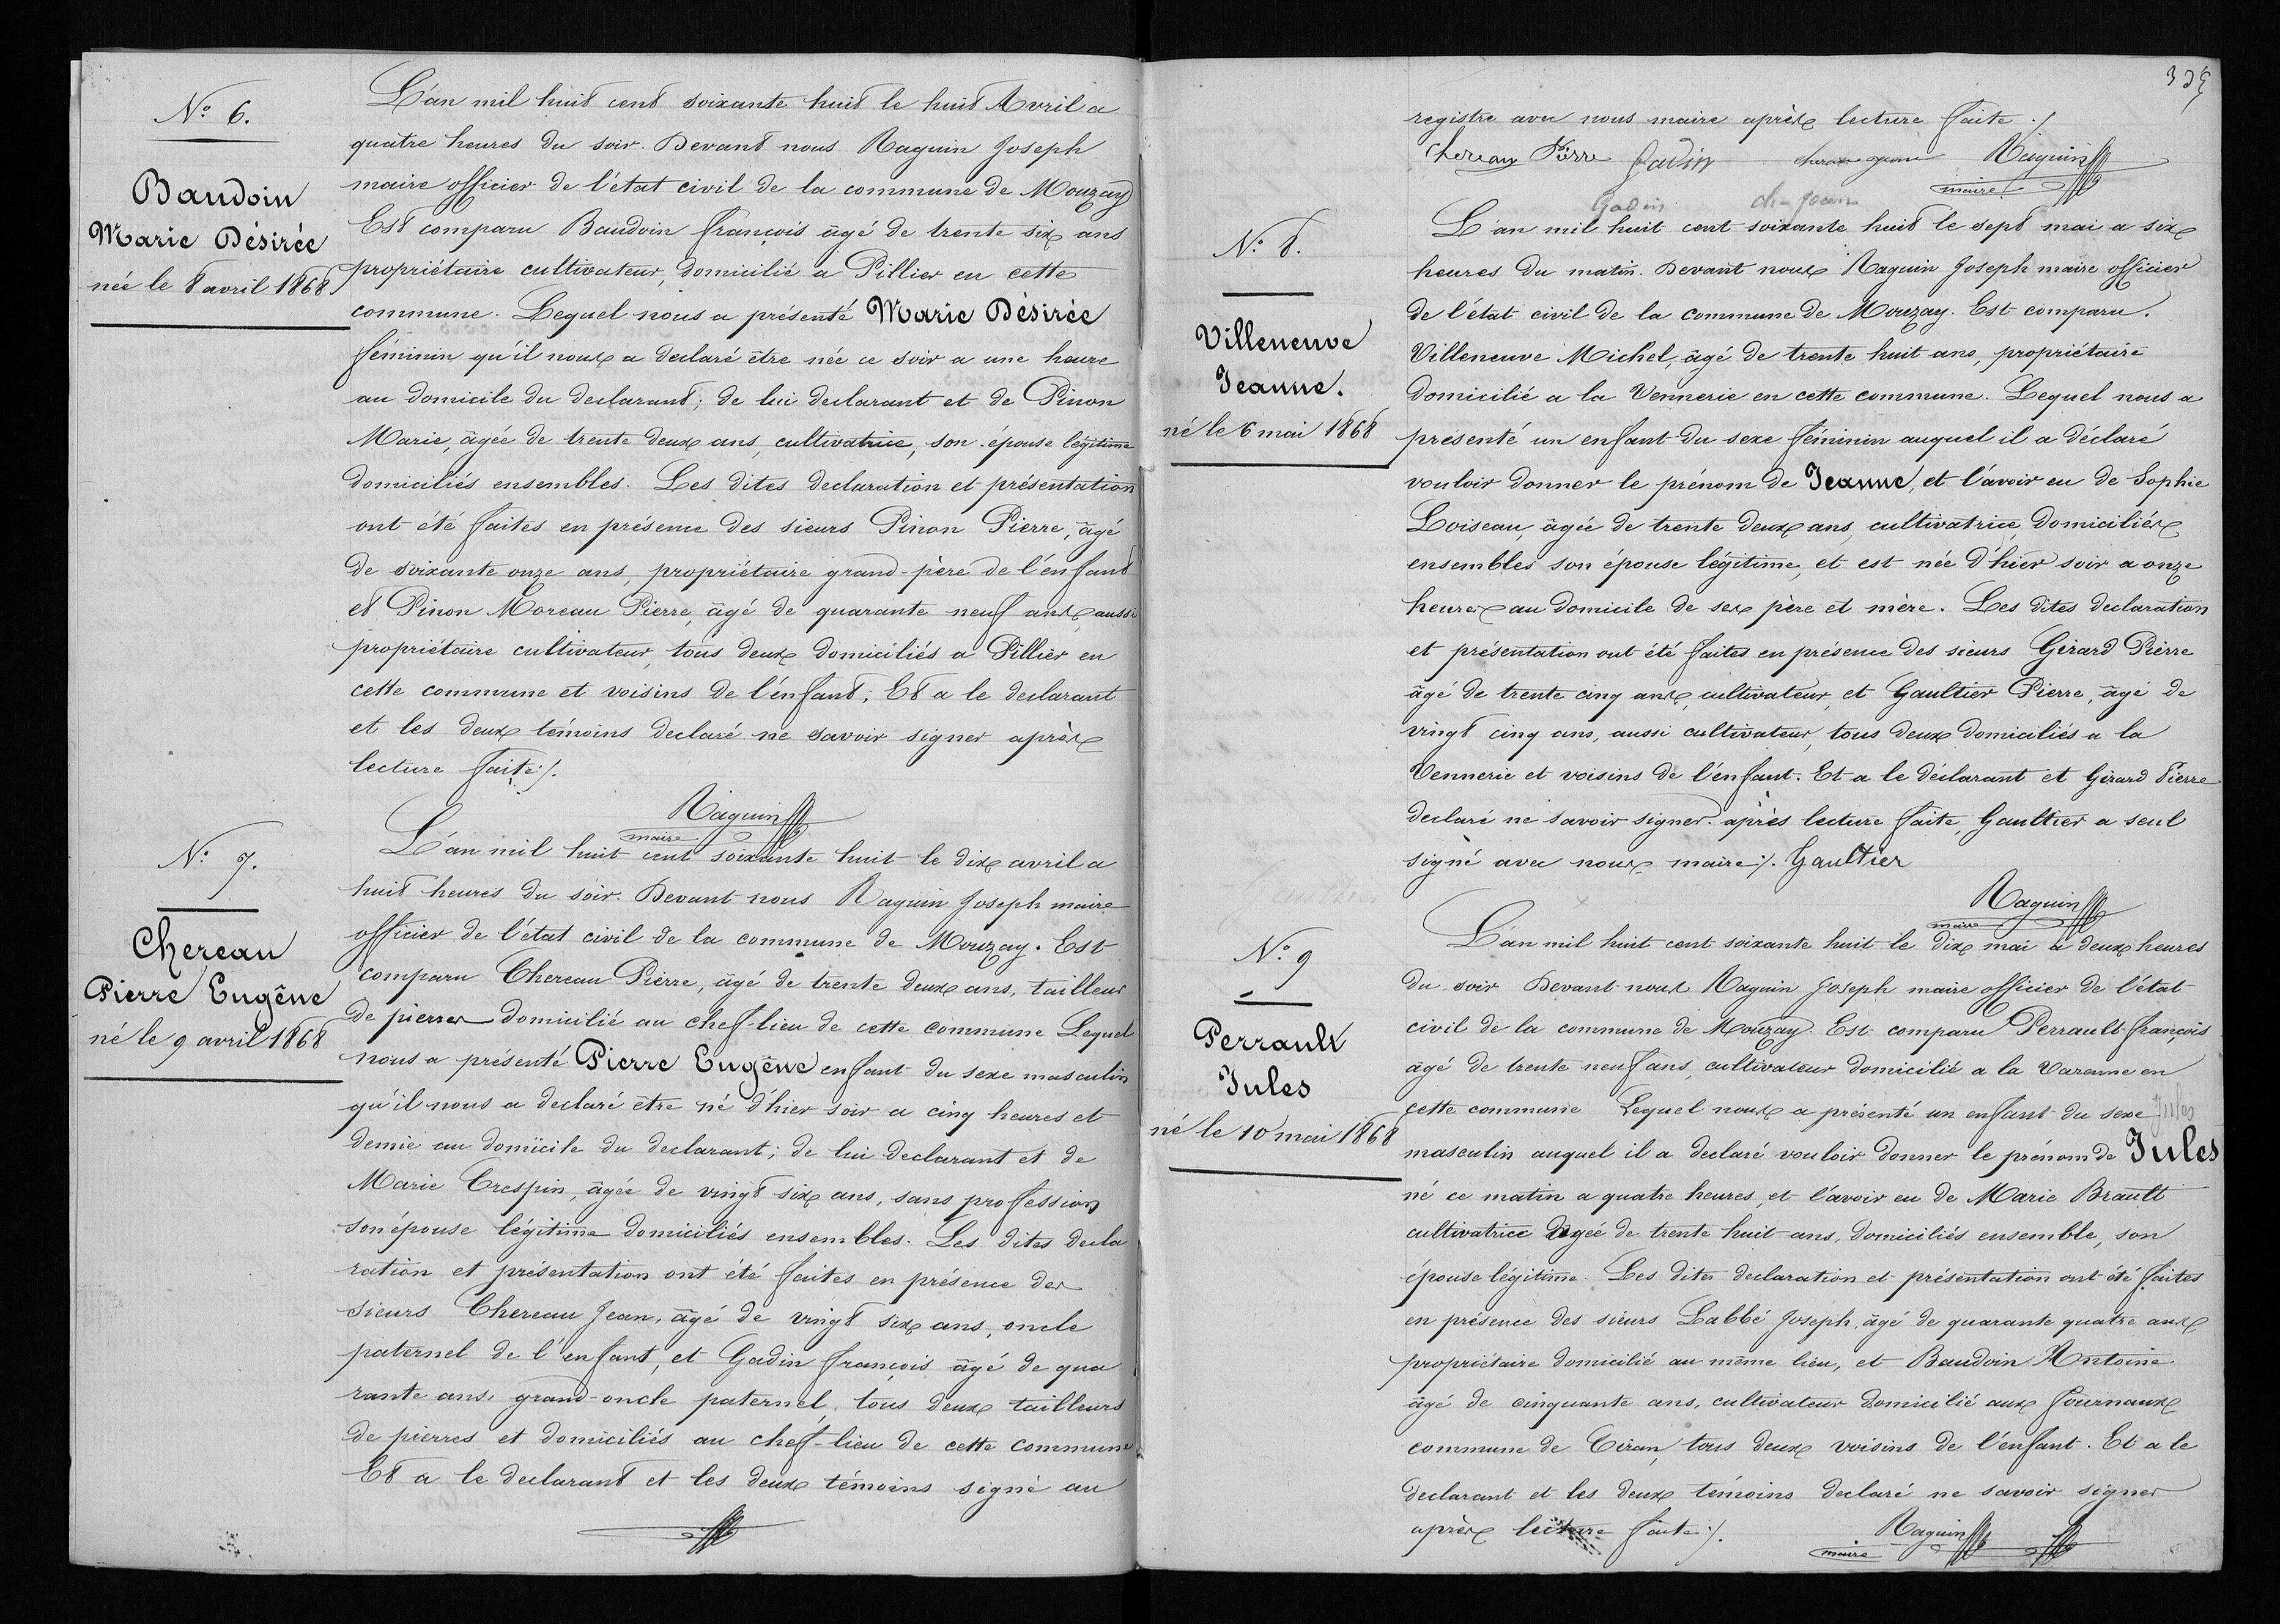 N° 6.
Baudoin
Marie Désirée
née le 8 avril 1868
L'an mil huit cent soixante huit le huit Avril a
quatre heures du soir. Devant nous Raguin Joseph
maire officier de l'état civil de la commune de Mouzay
Est comparu Baudoin françois âgé de trente six ans
propriétaire cultivateur, domicilié a Pillier en cette
commune. Lequel nous a présenté Marie Désirée
féminin qu'il nous a declaré être née ce soir a une heure
au domicile du declarant; de lui declarant et de Pinon
Marie, âgée de trente deux ans, cultivatrice, son épouse légitime
domiciliés ensembles. Les dites declaration et présentation
ont été faites en présence des sieurs Pinon Pierre, âgé
de soixante onze ans, propriétaire grand-père de l'enfant
et Pinon Moreau Pierre, âgé de quarante neuf ans, aussi
propriétaire cultivateur, tous deux domiciliés a Pillier en
cette commune et voisins de l'enfant; Et a le declarant
et les deux témoins declaré ne savoir signer après
lecture faite ./.
Raguin
maire
N° 7.
Chereau
Pierre Eugêne
né le 9 avril 1868
L'an mil huit cent soixante huit le dix avril a
huit heures du soir. Devant nous Raguin Joseph maire
officier de l'état civil de la commune de Mouzay. Est
comparu Chereau Pierre, âgé de trente deux ans, tailleur
de pierres domicilié au chef-lieu de cette commune Lequel
nous a présenté Pierre Eugêne enfant du sexe masculin
qu'il nous a declaré être né d'hier soir a cinq heures et
demie au domicile du declarant; de lui declarant et de
Marie Crespin, âgée de vingt six ans, sans proffession
son épouse légitime domiciliés ensembles. Les dites decla
ration et présentation ont été faites en présence des
sieurs Chereau Jean, âgé de vingt six ans, oncle
paternel de l'enfant, et Gadin françois âgé de qua
rante ans, grand-oncle paternel, tous deux tailleurs
de pierres et domiciliés au chef-lieu de cette commune
Et a le declarant et les deux témoins signé au
registre avec nous maire après lecture faite ./
Chereau Pierre Gadin chereau jean Raguin
maire
Gadin ch- jean
N° 8.
Villeneuve
Jeanne.
né le 6 mai 1868
L'an mil huit cent soixante huit le sept mai a six
heures du matin. Devant nous Raguin Joseph maire officier
de l'état civil de la commune de Mouzay. Est comparu.
Villeneuve Michel, âgé de trente huit ans, propriétaire
domicilié a la Vennerie en cette commune. Lequel nous a
présenté un enfant du sexe féminin auquel il a déclaré
vouloir donner le prénom de Jeanne, et l'avoir eu de Sophie
Loiseau, âgée de trente deux ans, cultivatrice, domiciliés
ensembles son épouse légitime, et est née d'hier soir a onze
heures au domicile de ses père et mère. Les dites declaration
et présentation ont été faites en présence des sieurs Gérard Pierre
âgé de trente cinq ans, cultivateur, et Gaultier Pierre, âgé de
vingt cinq ans, aussi cultivateur, tous deux domiciliés a la
Vennerie et voisins de l'enfant. Et a le déclarant et Gérard Pierre
declaré ne savoir signer. après lecture faite, Gaultier a seul
signé avec nous maire ./. Gaultier
Raguin
maire
N° 9
Perrault
Jules
né le 10 mai 1868
L'an mil huit cent soixante huit le dix mai à deux heures
du soir Devant nous Raguin Joseph maire officier de l'état
civil de la commune de Mouzay. Est comparu Perrault françois
âgé de trente neuf ans, cultivateur domicilié a la Varenne en
cette commune Lequel nous a présenté un enfant du sexe Jules
masculin auquel il a declaré vouloir donner le prénom de Jules
né ce matin a quatre heures, et l'avoir eu de Marie Brault
cultivatrice âgée de trente huit ans, domiciliés ensemble, son
épouse légitime. Les dites declaration et présentation ont été faites
en présence des sieurs Labbé Joseph, âgé de quarante quatre ans
propriétaire domicilié au même lieu, et Baudoin Antoine
âgé de cinquante ans, cultivateur domicilié aux fournaux
commune de Ciran, tous deux voisins de l'enfant. Et a le
declarant et les deux témoins declaré ne savoir signer
après lecture faite ./. Raguin
maire